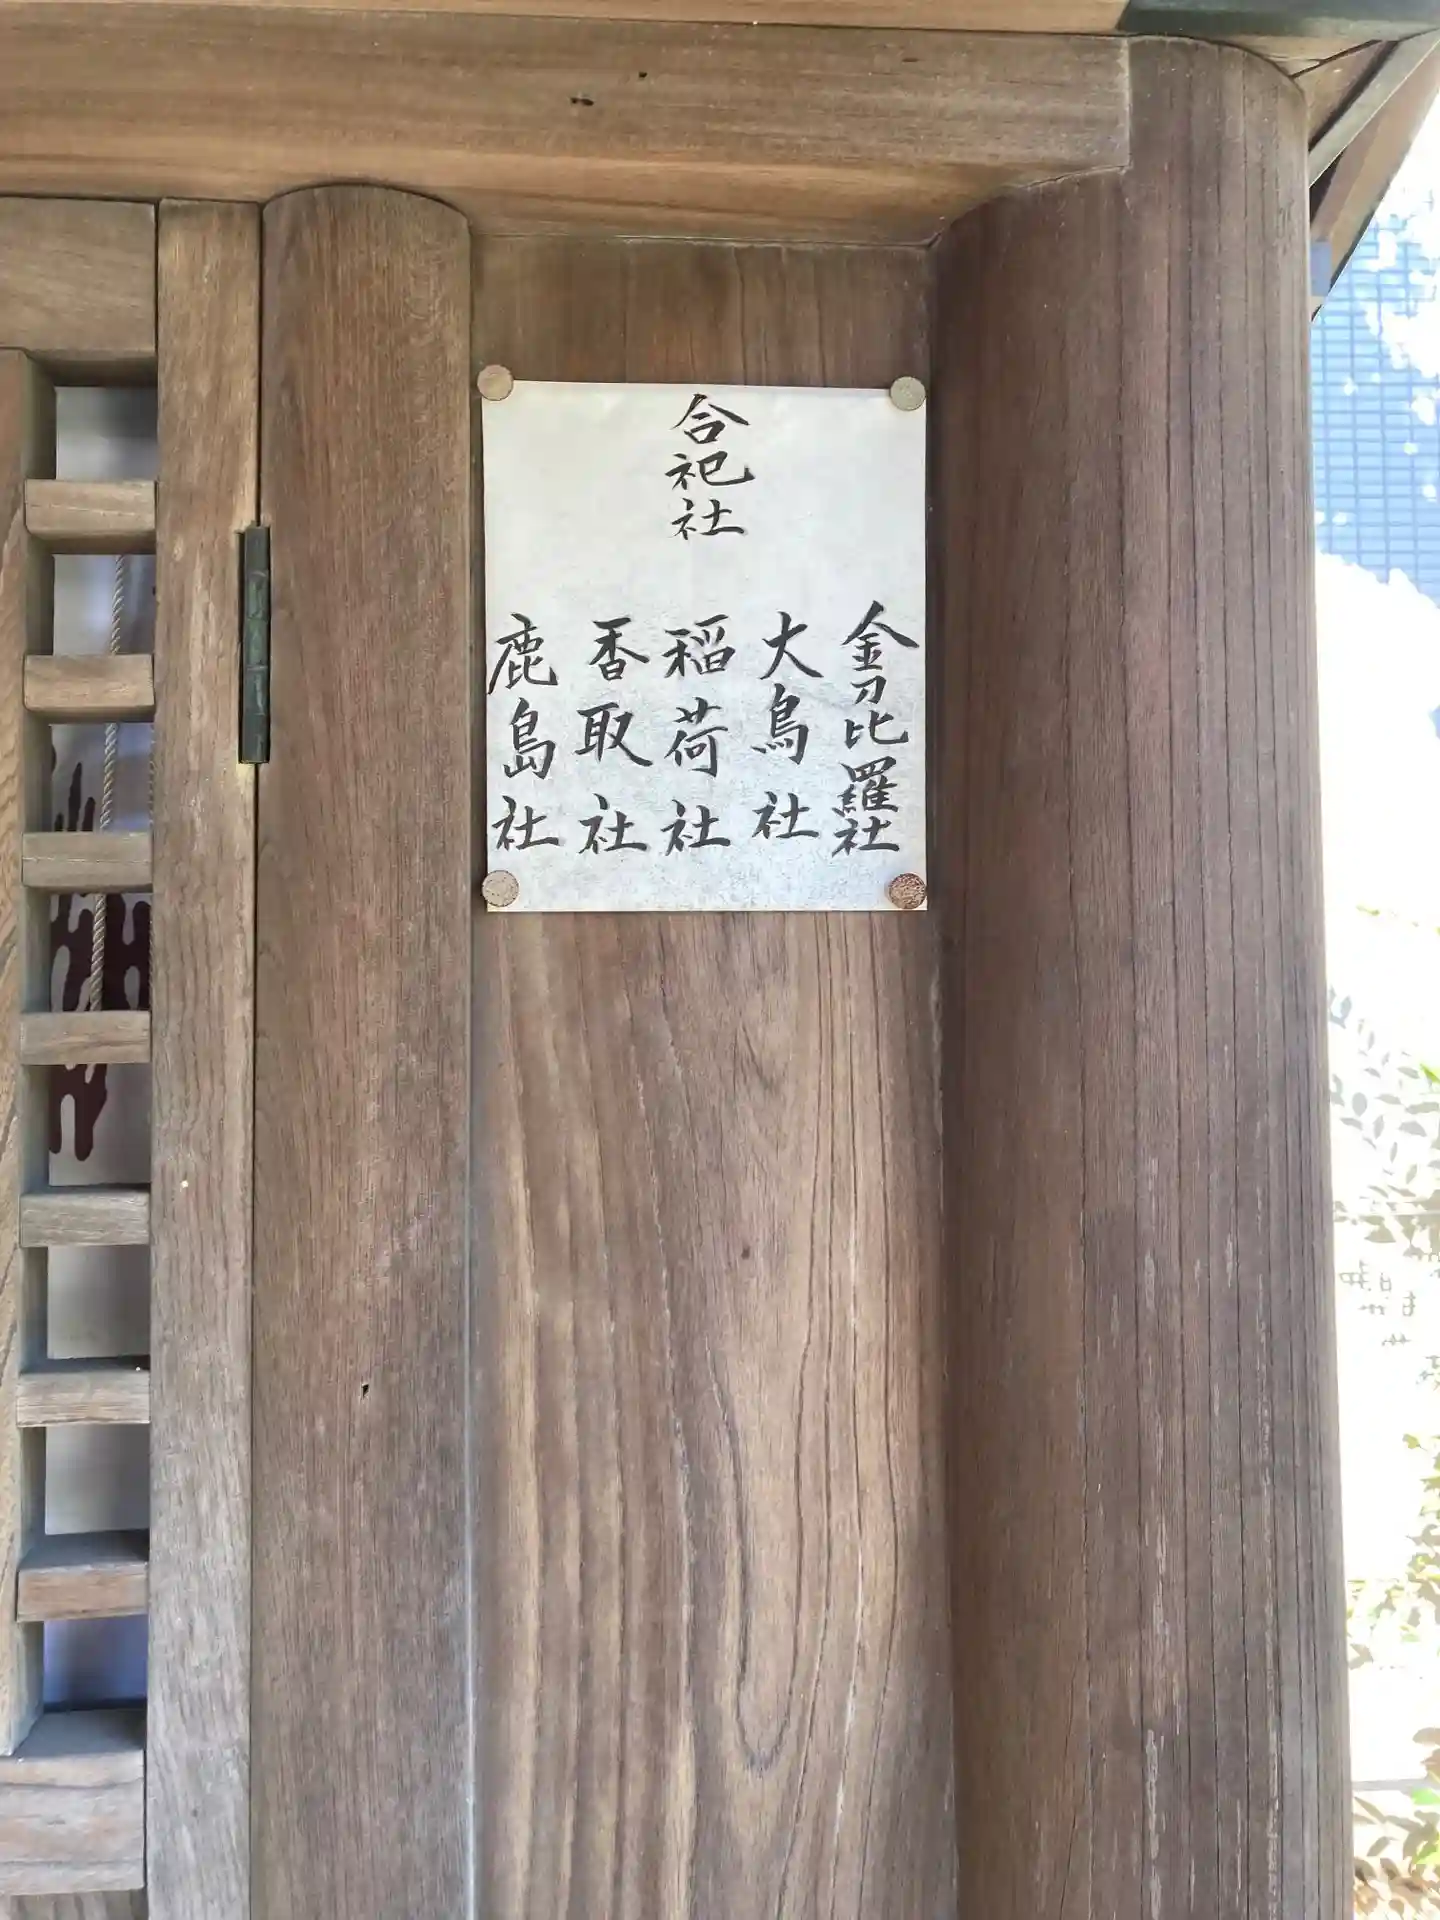 合祀社
金刀比羅社
大鳥社
稲荷社
香取社
鹿島社